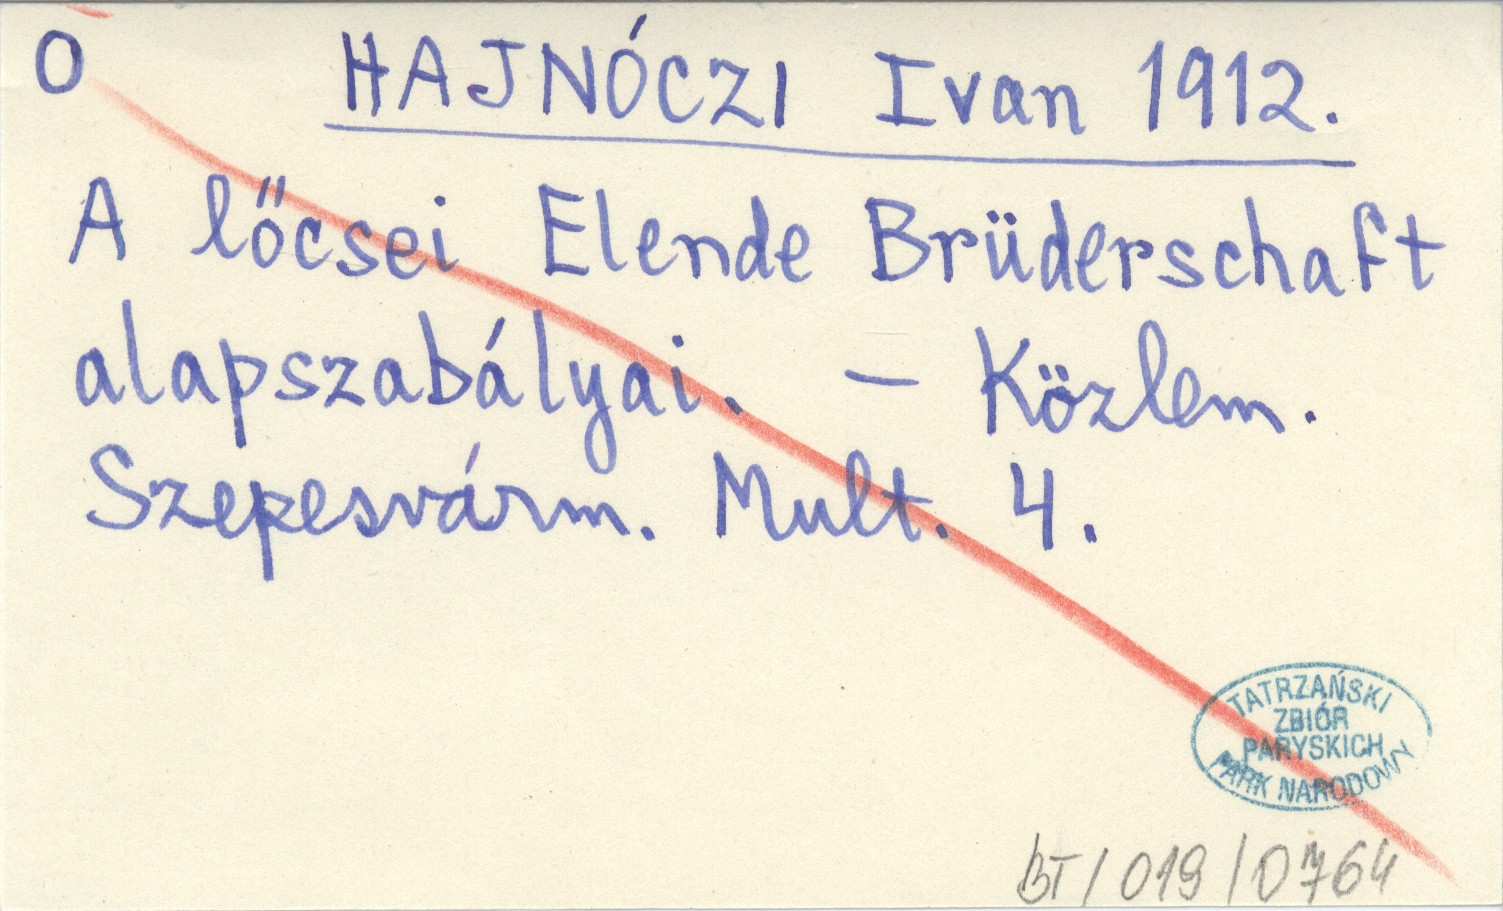 O HAJNÓCZI Ivan 1912.
A lőcsei Elende Brüderschaft
alapszabályai. – Közlem.
Szepesvárm. Mult. 4.
TATRZAŃSKI
ZBIÓR
PARYSKICH
PARK NARODOWY
BT/019/0764